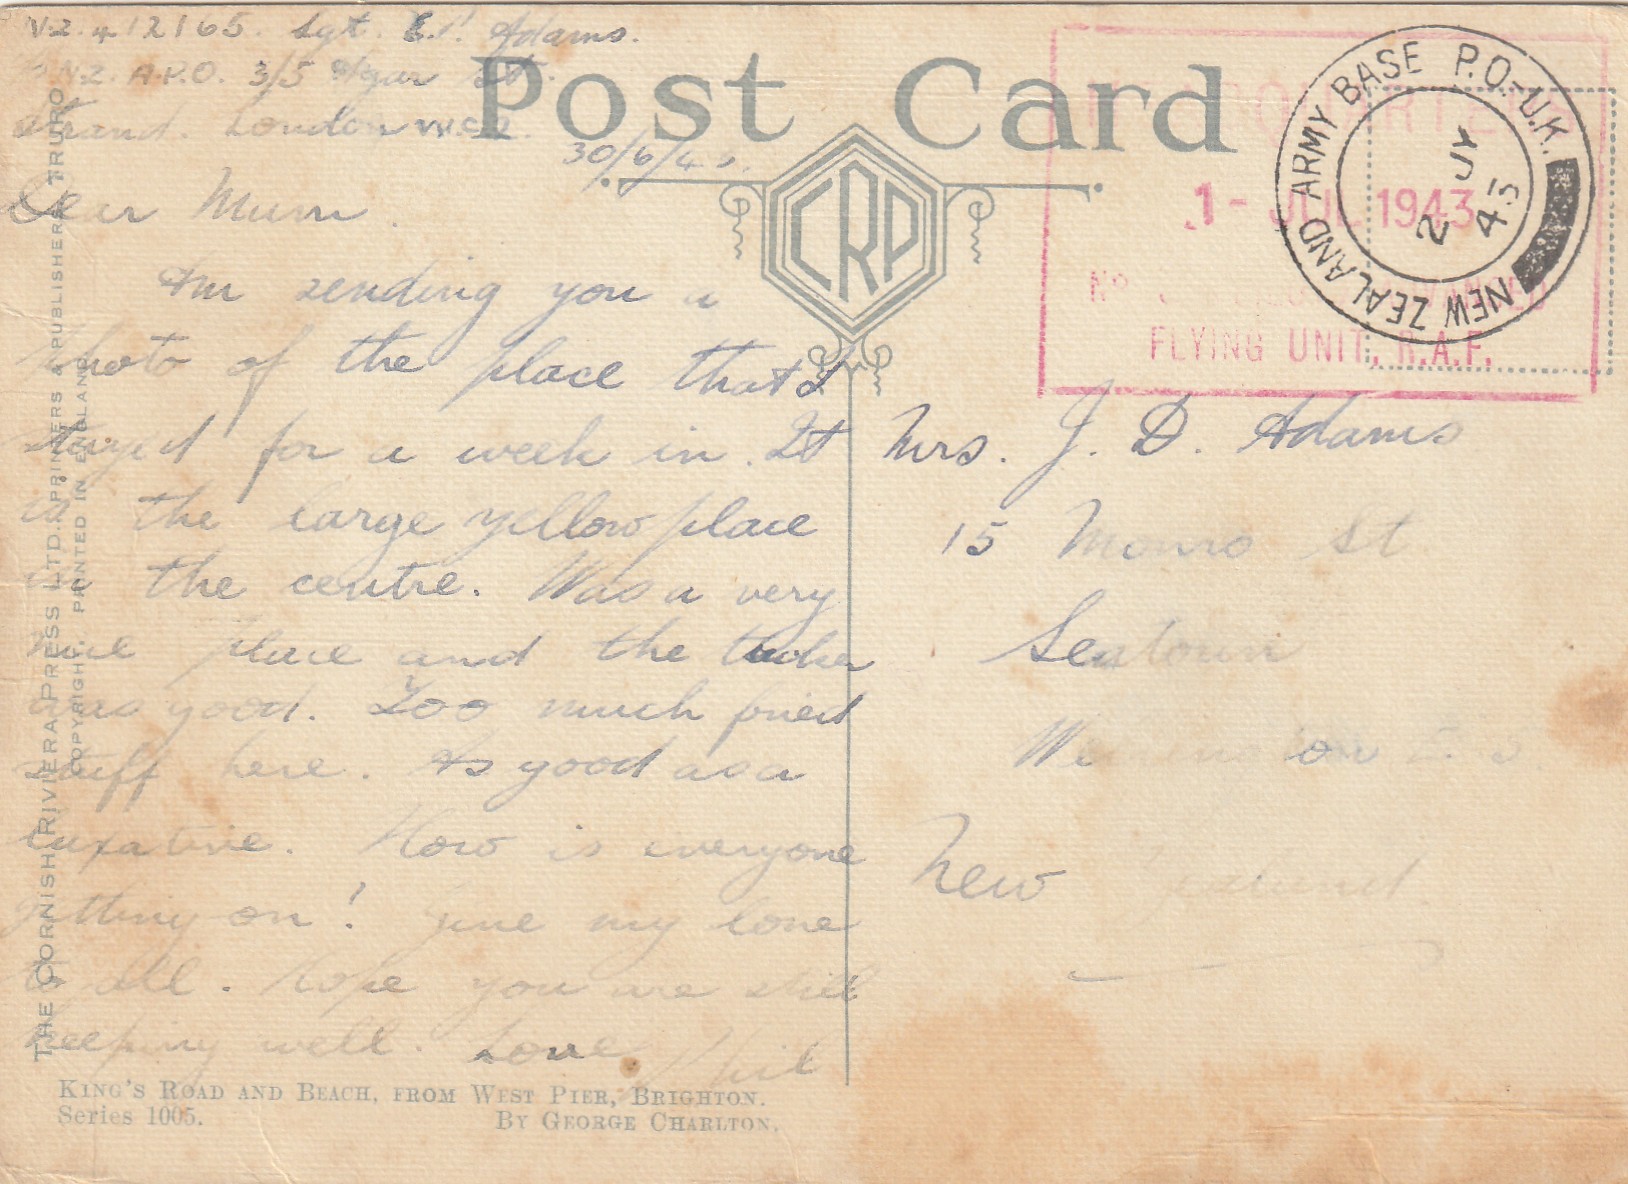 N.Z. 412165. Sgt. E.P. Adams.
N.Z. A.P.O. 3/5 St.
Strand. London W.C.2.
30/6/43.
Post Card
CRP
Dear Mum.
Am sending you a
photo of the place that I
stayed for a week in. It
is the large yellow place
in the centre. Was a very
nice place and the tucker
was good. Too much fried
stuff here. As good as a
laxative. How is everyone
getting on! Give my love
to all. Hope you are still
keeping well. Love
Phil
Mrs. J. D. Adams
15 Monro St
Seatoun
Wellington E.
New Zealand.
NEW ZEALAND ARMY BASE P.O.-U.K.
2 JY
43
HEADQUARTERS
1 - JUL 1943
No
FLYING UNIT, R.A.F.
THE CORNISH RIVIERA PRESS LTD. PRINTERS & PUBLISHERS TRURO
COPYRIGHT, PRINTED IN ENGLAND
KING'S ROAD AND BEACH, FROM WEST PIER, BRIGHTON.
Series 1005. BY GEORGE CHARLTON.